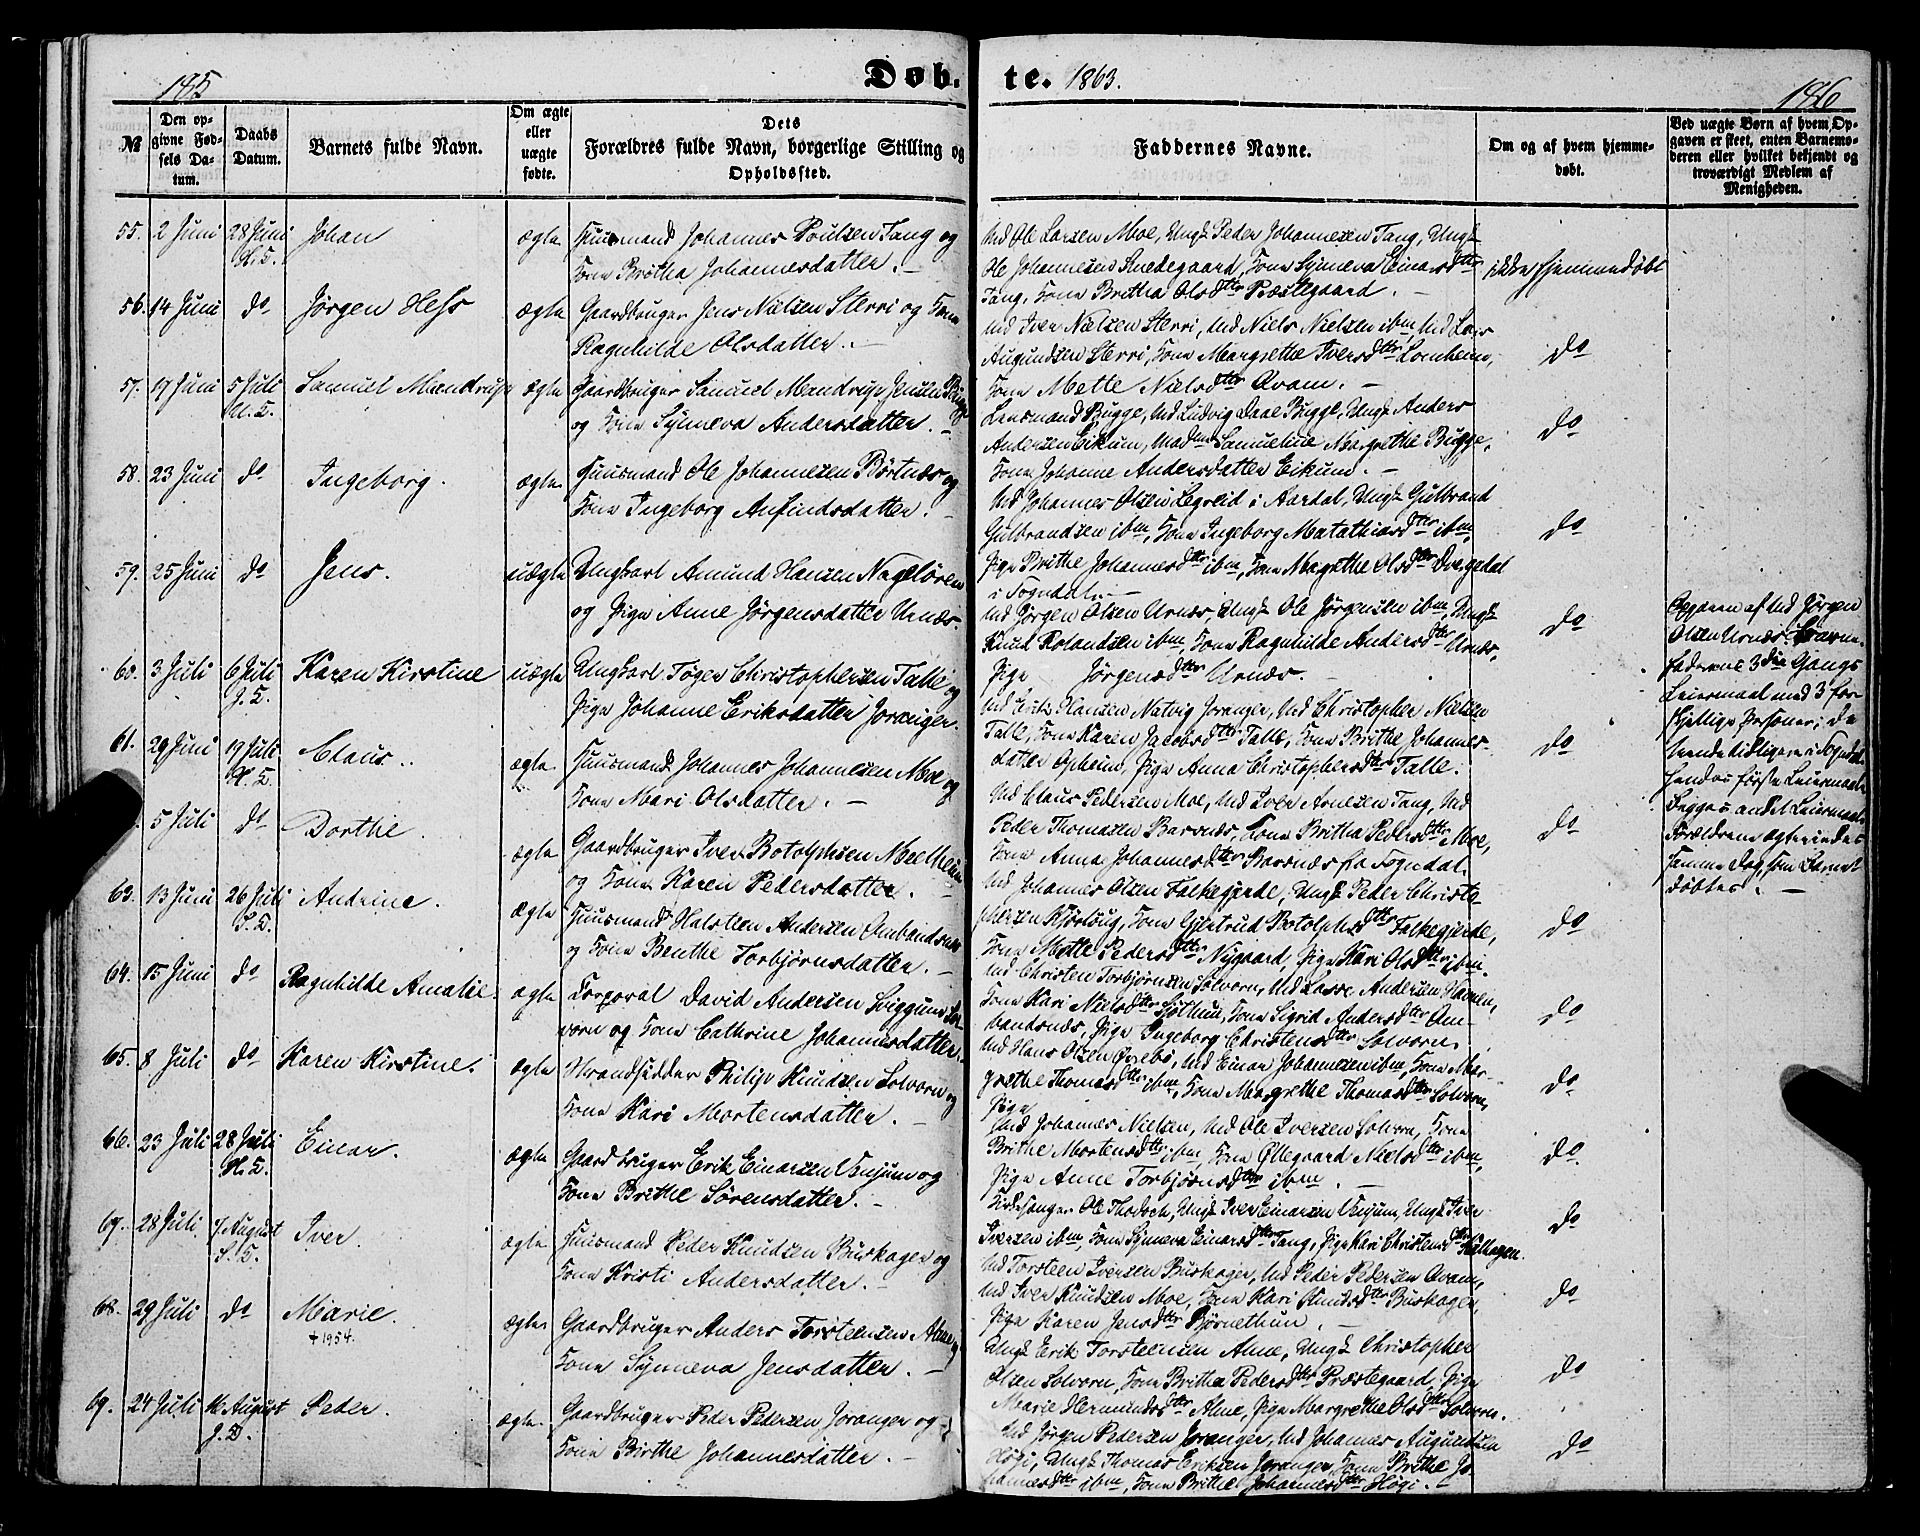 185
Døb-
te. 1863.
186
№
Den op-
givne Fød-
sels Da-
tum.
Daabs
Datum.
Barnets fulde Navn.
Om ægte
eller
uægte
fødte.
Dets
Forældres fulde Navn, borgerlige Stilling og
Opholdssted.
Faddernes Navne.
Om og af hvem hjemme-
døbt.
Ved uægte Børn af hvem Op-
gaven er skeet, enten Barnemo-
deren eller hvilket bekjendt og
troværdigt Medlem af
Menigheden.
55. 2 Juni 28 Juni Johan ægte Huusmand Johannes Poulsen Tang og
H. K. Kone Britha Johannesdatter. —
Md Ole Larsen Moe, Ungk Peder Johannesen Tang, Ungk
Ole Johannesen Smedegaard, Kone Synneva Einarsdttr
Tang, Kone Britha Olsdttr Præstegaard. —
ikke hjemmedøbt
56. 14 Juni do Jørgen Hess ægte Gaardbruger Jens Nielsen Sterri og Kone
Ragnhilde Olsdatter. —
Md Iver Nielsen Sterri, Md Niels Nielsen ibm, Md Lars
Augundsen Sterri, Kone Margrethe Iversdttr Lomheim,
Kone Mette Nielsdttr Qvam. —
do
57. 17 Juni 5 Juli Samuel Mandrup ægte Gaardbruger Samuel Mandrup Jensen Bugge
H. K. og Kone Synneva Andersdatter. —
Lensmand Bugge, Md Ludvig Daae Bugge, Ungk Anders
Andersen Eikum, Madm Samueline Margrethe Bugge,
Kone Johanne Andersdatter Eikum. —
do
58. 23 Juni do Ingeborg. ægte Huusmand Ole Johannesen Børtnæs og
Kone Ingeborg Anfindsdatter. —
Md Johannes Olsen Legreid i Aardal, Ungk Gulbrand
Gulbrandsen ibm, Kone Ingeborg Matathiasdttr ibm,
Pige Brithe Johannesdttr ibm, Kone Magrethe Olsdttr Dvergedal
i Sogndal. —
do
59. 25 Juni do Jens. uægte Ungkarl Amund Hansen Nagløren
og Pige Anne Jørgensdatter Urnæs.
Md Jørgen Olsen Urnæs, Ungk Ole Jørgensen ibm, Ungk
Knud Rolandsen ibm, Kone Ragnhilde Andersdttr Urnæs,
Pige Jørgensdttr Urnæs. —
do
Opgaven af Md Jørgen
Olsen Urnæs. Barne-
faderens 3die Gangs
Leiermaal med 3 for-
skjellige Personer; de
hendes første Leiermaal.
60. 3 Juli 6 Juli Karen Kirstine uægte Ungkarl Tøger Christophersen Talle og
J. K. Pige Johanne Eriksdatter Joranger.
Md Erik Hansen Natvig Joranger, Md Christopher Nielsen
Talle, Kone Karen Jacobsdttr Talle, Kone Brithe Johannes-
datter Opheim, Pige Anna Christophersdttr Talle.
do
Begges andet Leiermaal.
Forældrene ægteviedes
samme Dag, som Barnet
døbtes. —
61. 29 Juni 19 Juli Claus. ægte Huusmand Johannes Johannesen Moe og
H. K. Kone Mari Olsdatter. —
Md Claus Pedersen Moe, Md Iver Arnesen Tang, Md
Peder Thomasen Barsnæs, Kone Britha Pedersdttr Moe,
Kone Anna Johannesdttr Barsnæs fra Sogndal.
do
5 Juli do Dorthe. ægte Gaardbruger Iver Botolphsen Meelheim
og Kone Karen Pedersdatter. —
Md Johannes Olsen Falkegjerde, Ungk Peder Christo-
phersen Kjørlaug, Kone Gjertrud Botolphsdttr Falkegjerde,
Kone Mette Pedersdttr Nygaard, Pige Kari Olsdttr ibm.
do
63. 13 Juni 26 Juli Andrine. ægte Huusmand Halsteen Andersen Ombandsnæs
S. K. og Kone Benthe Torbjørnsdatter. —
Md Christen Torbjørnsen Solvorn, Md Lasse Andersen Havnen,
Kone Kari Nielsdttr Kjølhuu, Kone Sigrid Andersdttr Om-
bandsnæs, Pige Ingeborg Christensdttr Solvorn.
do
64. 15 Juni do Ragnhilde Amalie. ægte Corporal David Andersen Eiggum Sol-
vorn og Kone Cathrine Johannesdatter.
Md Hans Olsen Øvrebø, Md Einar Johannesen ibm, Kone Mar-
grethe Thomasdttr ibm, Kone Margrethe Thomasdttr Solvorn,
Pige
do
65. 8 Juli do Karen Kirstine. ægte Strandsidder Philip Knudsen Solvorn og
Kone Kari Mortensdatter. —
Md Johannes Nielsen, Md Ole Iversen Solvorn, Kone
Brithe Mortensdttr ibm, Kone Øllegaard Nielsdttr ibm,
Pige Anne Torbjørnsdttr ibm. —
do.
66. 23 Juli 28 Juli Einar. ægte Gaardbruger Erik Einarsen Venjum og
H. K. Kone Brithe Sørensdatter. —
Kirkesanger Ole Thodsch, Ungk Iver Einarsen Venjum, Ungk Iver
Iversen ibm, Kone Synneva Einarsdttr Tang, Pige Kari Christensdttr Kalhagen.
do
67. 28 Juli 4 August Iver. ægte Huusmand Peder Knudsen Buskagen og
S. K. Kone Kristi Andersdatter. —
Md Torsteen Iversen Buskagen, Md Peder Pedersen Qvam,
Md Iver Knudsen Moe, Kone Kari Knudsdttr Buskagen,
Pige Karen Jensdttr Bjørnethun. —
do
68. 29 Juli do Marie. ægte Gaardbruger Anders Torsteensen Alme og
+ 1954. Kone Synneva Jensdatter. —
Ungk Erik Torsteensen Alme, Ungk Christopher
Olsen Solvorn, Kone Britha Pedersdttr Præstegaard, Pige
Marie Hermundsdttr Alme, Pige Margrethe Olsdttr Solvorn.
do
69. 24 Juli 16 August Peder. ægte Gaardbruger Peder Pedersen Joranger og
J. K. Kone Birthe Johannesdatter. —
Md Jørgen Pedersen Joranger, Md Johannes Augundsen
Høgi, Ungk Thomas Eriksen Joranger, Kone Brithe Jo-
hannesdttr ibm, Kone Brithe Johannesdttr Høgi. —
do